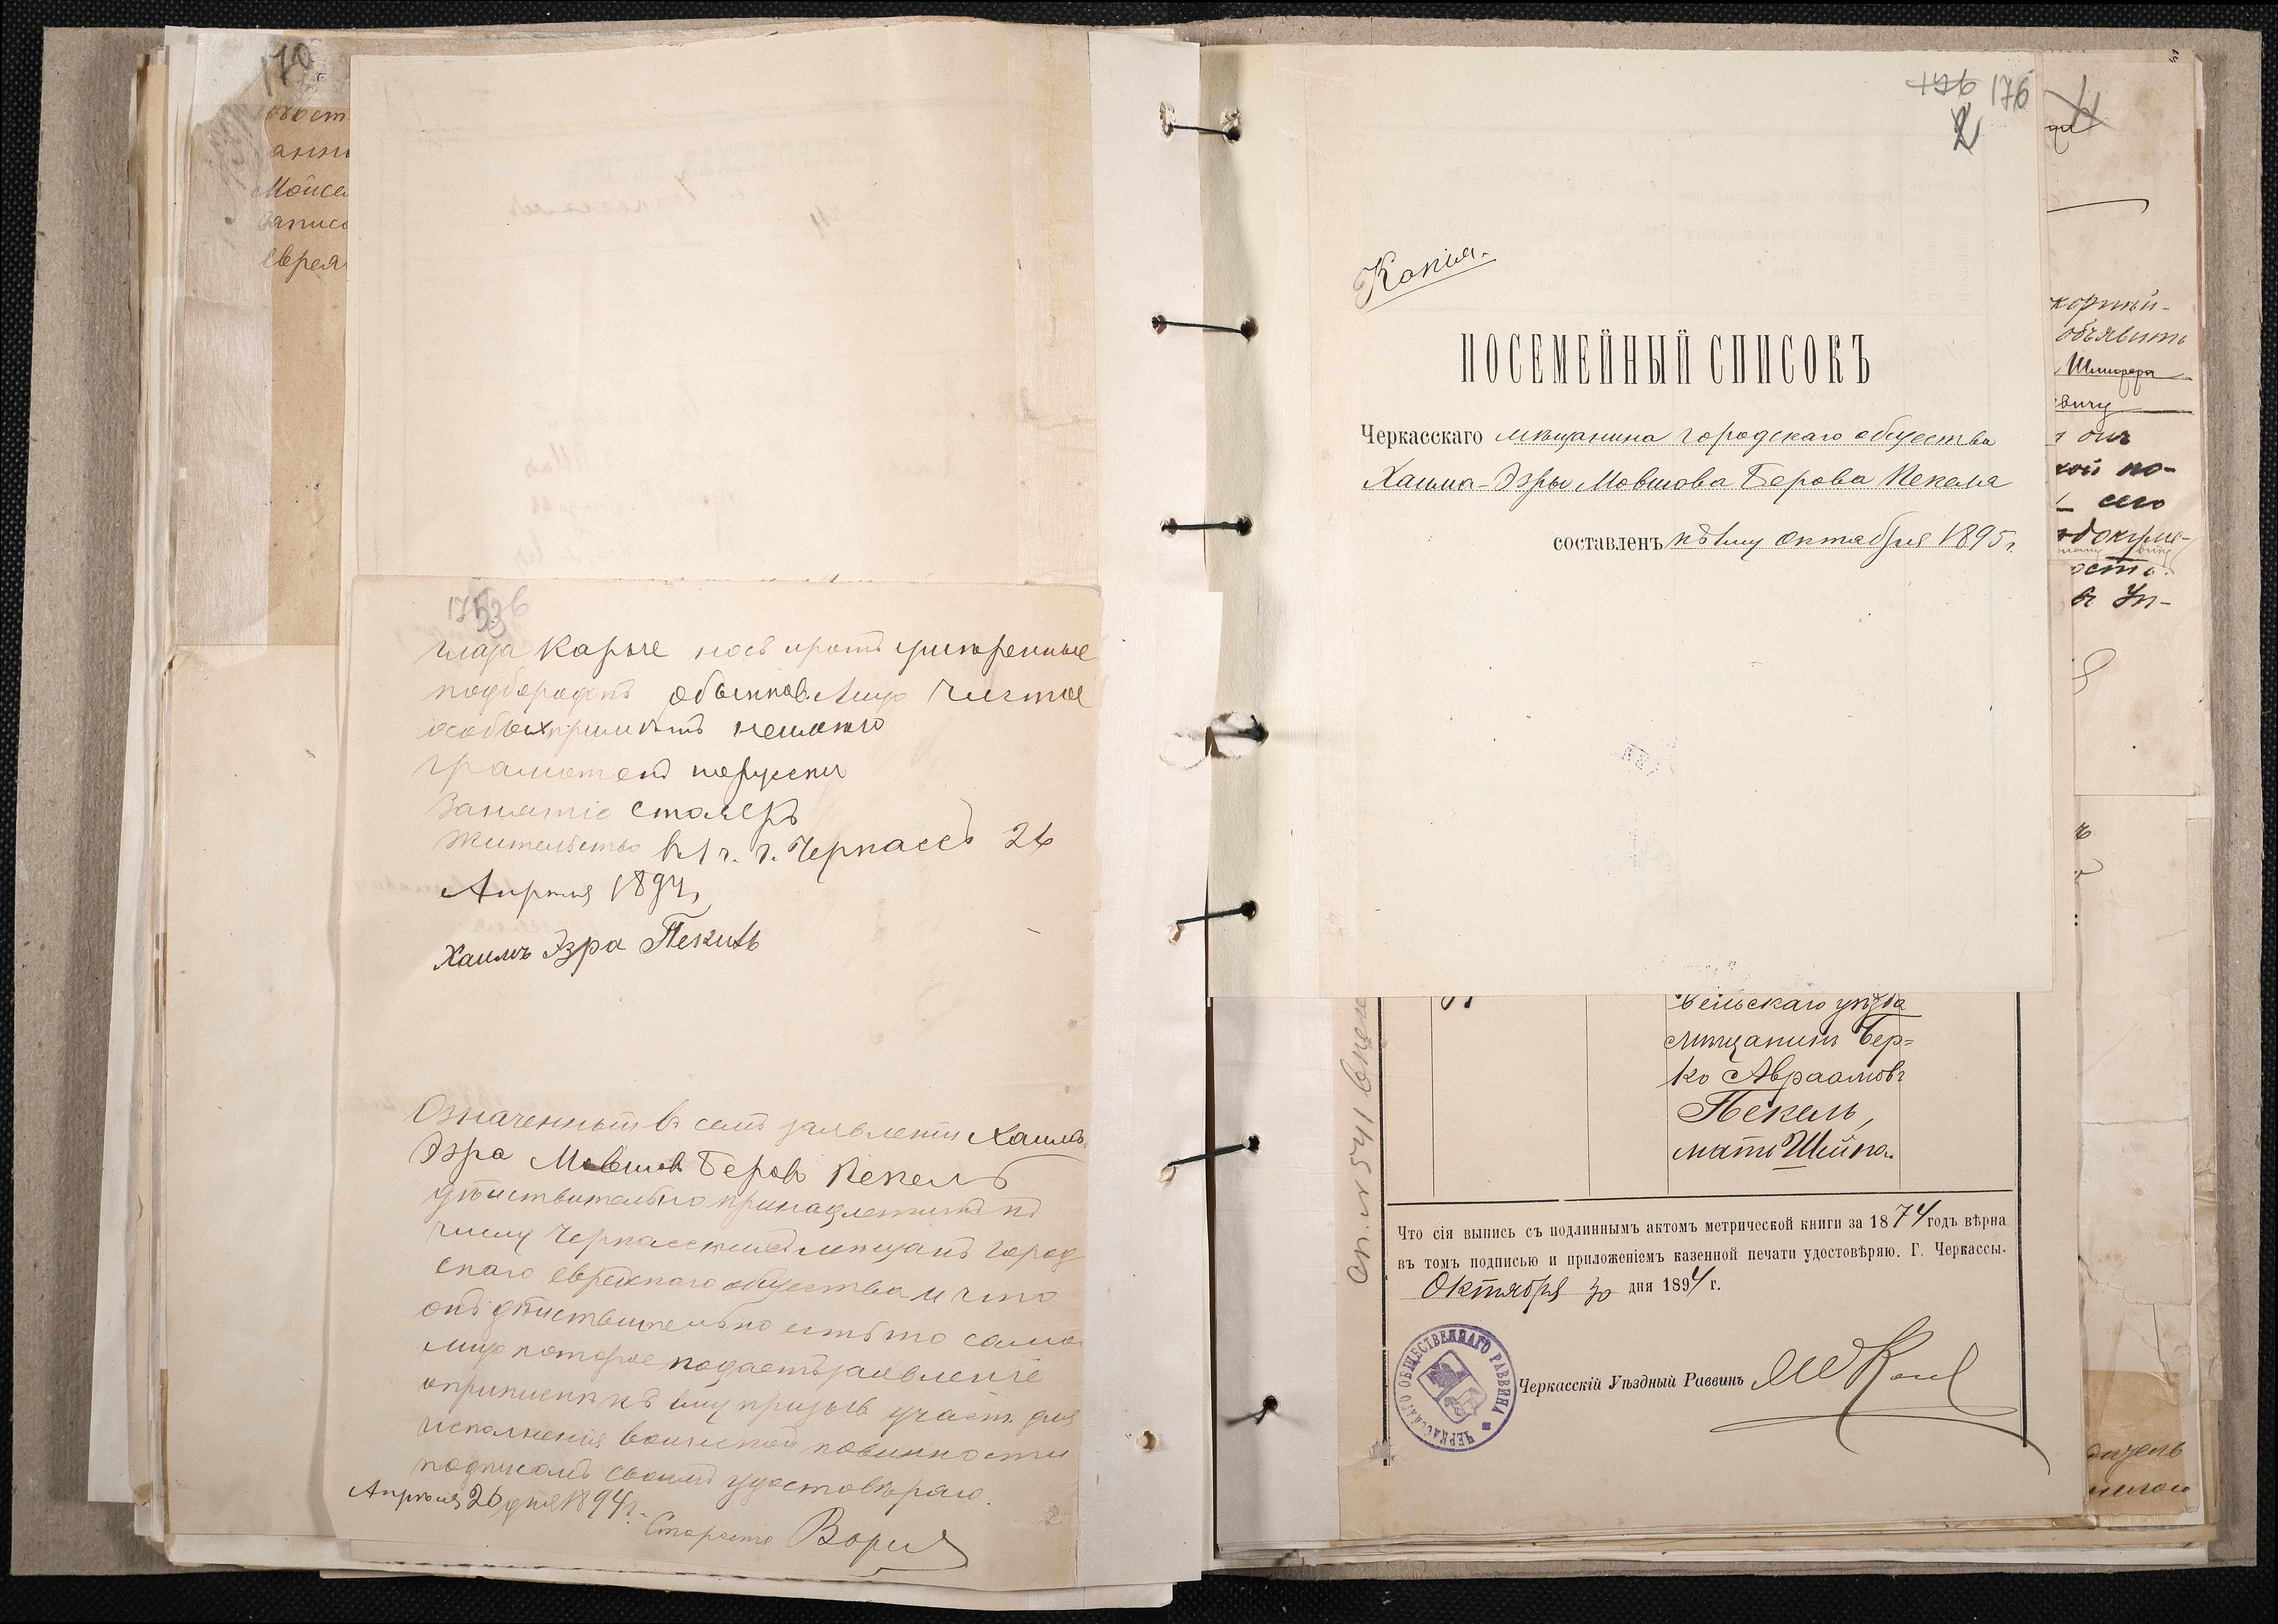 170
Моисе
записа
еврея
175 об
глаза карые носъ и ротъ умѣренные
подбородокъ обыкнов. Лицо чистое
особыхъ примѣтъ неимѣю
грамотенъ порусски
Занятіе столяръ
жительство в 1 ч. г. Черкассъ 26
Апрѣля 1894 г.
Хаимъ Эзра Пекель
Означенный въ семъ заявленіи Хаимъ
Эзра Мовшов Беров Пекель
дѣйствительно принадлежитъ къ
числу Черкасскихъ мещанъ город
скаго еврейскаго общества и что
онъ дѣйствительно есть то само
лицо которое подаетъ заявленіе
о припискѣ къ ему призыв. участ. для
исполненія воинской повинности
подписомъ своимъ удостовѣряю.
Апрѣля 26 дня 1894 г.
Староста
176 176
2
Копія.
ПОСЕМЕЙНЫЙ СПИСОКЪ
Черкасскаго мѣщанина городскаго общества
Хаима-Эзры Мовшова Берова Пекеля
составленъ къ 1му октября 1895 г.
бельскаго уѣзда
мѣщанинъ Бер=
ко Авраамовъ
Пекель,
мать Шейна.
Что сія выпись съ подлиннымъ актомъ метрической книги за 1874 годъ вѣрна
въ томъ подписью и приложеніемъ казенной печати удостовѣряю. Г. Черкассы.
Октября 30 дня 1894 г.
Черкасскій Уѣздный Раввинъ
ЧЕРКАССКАГО ОБЩЕСТВЕННАГО РАВВИНА
оп. № 541
объявить
Шмифера
евичу
кой по-
сего
докуме-
ость
въ Уп-